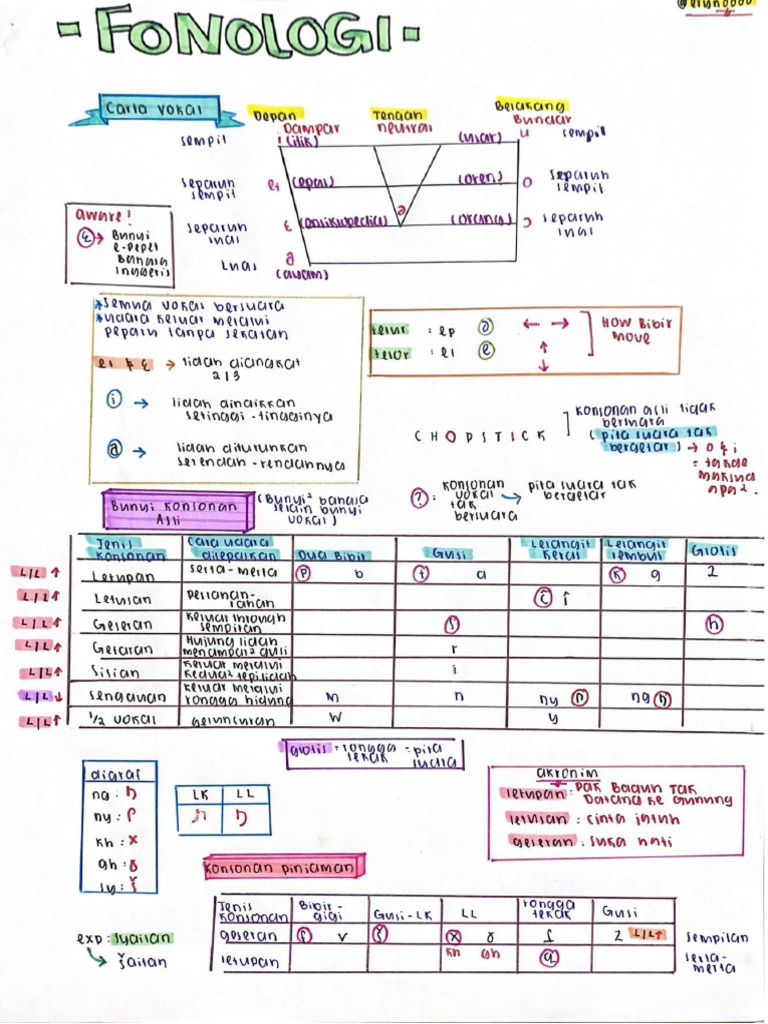 - FONOLOGI -
Carta vokal
Depan
Tengah
Belakang
Dampar
neutral
Bundar
sempit
i (itik)
(ular)
u
sempit
separuh
sempit
e1
(epal)
(oren)
o
separuh
sempit
aware!
ε → Bunyi
e-pepet
Bahasa
Inggeris
separuh
luas
ε
(ensiklopedia)
ə
(orang)
ɔ
separuh
luas
Luas
a
(ayam)
* semua vokal bersuara
* udara keluar melalui
peparu tanpa sekatan
e1 & ε → lidah diangkat
2/3
i → lidah dinaikkan
setinggi-tingginya
a → lidah diturunkan
serendah-rendahnya
telur : ep ə ← →
telor : e1 e ↑ ↓
How Bibir
move
CHOPSTICK
konsonan asli tidak
bersuara
(pita suara tak
bergetar) → o & i
= takde
makna
apa2.
? : konsonan
vokal
tak
bersuara
→ pita suara tak
bergetar
Bunyi konsonan
Asli
(Bunyi² bahasa
selain bunyi
vokal)
Jenis
konsonan
Cara udara
dilepaskan
Dua Bibir
Gusi
Lelangit
keras
Lelangit
lembut
Glotis
L/L ↑ Letupan serta-merta p b t d k g 2
L/L ↑ Letusan perlahan-
lahan
č ǰ
L/L ↑ Geseran keluar through
sempitan
s h
L/L ↑ Getaran Hujung lidah
menampar² gusi
r
L/L ↑ Sisian keluar melalui
kedua² tepi lidah
l
L/L ↓ sengauan keluar melalui
rongga hidung
m n ny ɲ ng ŋ
L/L ↑ 1/2 vokal geluncuran w y
glotis = rongga = pita
tekak suara
digraf
ng : ŋ
ny : ɲ
kh : x
gh : ɣ
sy : š
LK LL
ɲ ŋ
akronim
letupan : Pak Bagun Tak
Datang ke Gunung
letusan : cinta jatuh
geseran : suka hati
konsonan pinjaman
Jenis
konsonan
Bibir-
gigi
Gusi-LK
LL
rongga
tekak
Gusi
geseran f v š x ɣ z L/L↑ sempitan
kh gh
letupan q serta-
merta
exp: syaitan
↳ šaitan